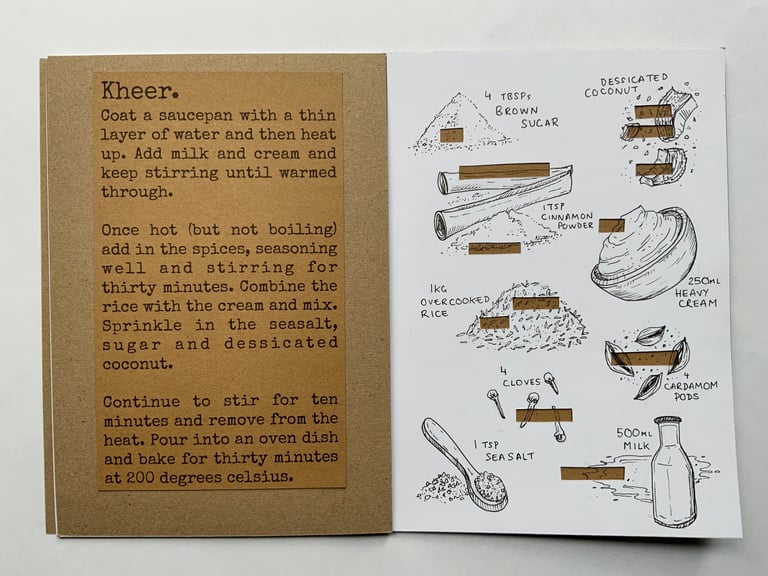 Kheer.
Coat a saucepan with a thin
layer of water and then heat
up. Add milk and cream and
keep stirring until warmed
through.
Once hot (but not boiling)
add in the spices, seasoning
well and stirring for
thirty minutes. Combine the
rice with the cream and mix.
Sprinkle in the seasalt,
sugar and dessicated
coconut.
Continue to stir for ten
minutes and remove from the
heat. Pour into an oven dish
and bake for thirty minutes
at 200 degrees celsius.
4 TBSPs
BROWN
SUGAR
DESSICATED
COCONUT
1 TSP
CINNAMON
POWDER
250ML
HEAVY
CREAM
1KG
OVERCOOKED
RICE
4
CLOVES
4
CARDAMOM
PODS
1 TSP
SEASALT
500ML
MILK